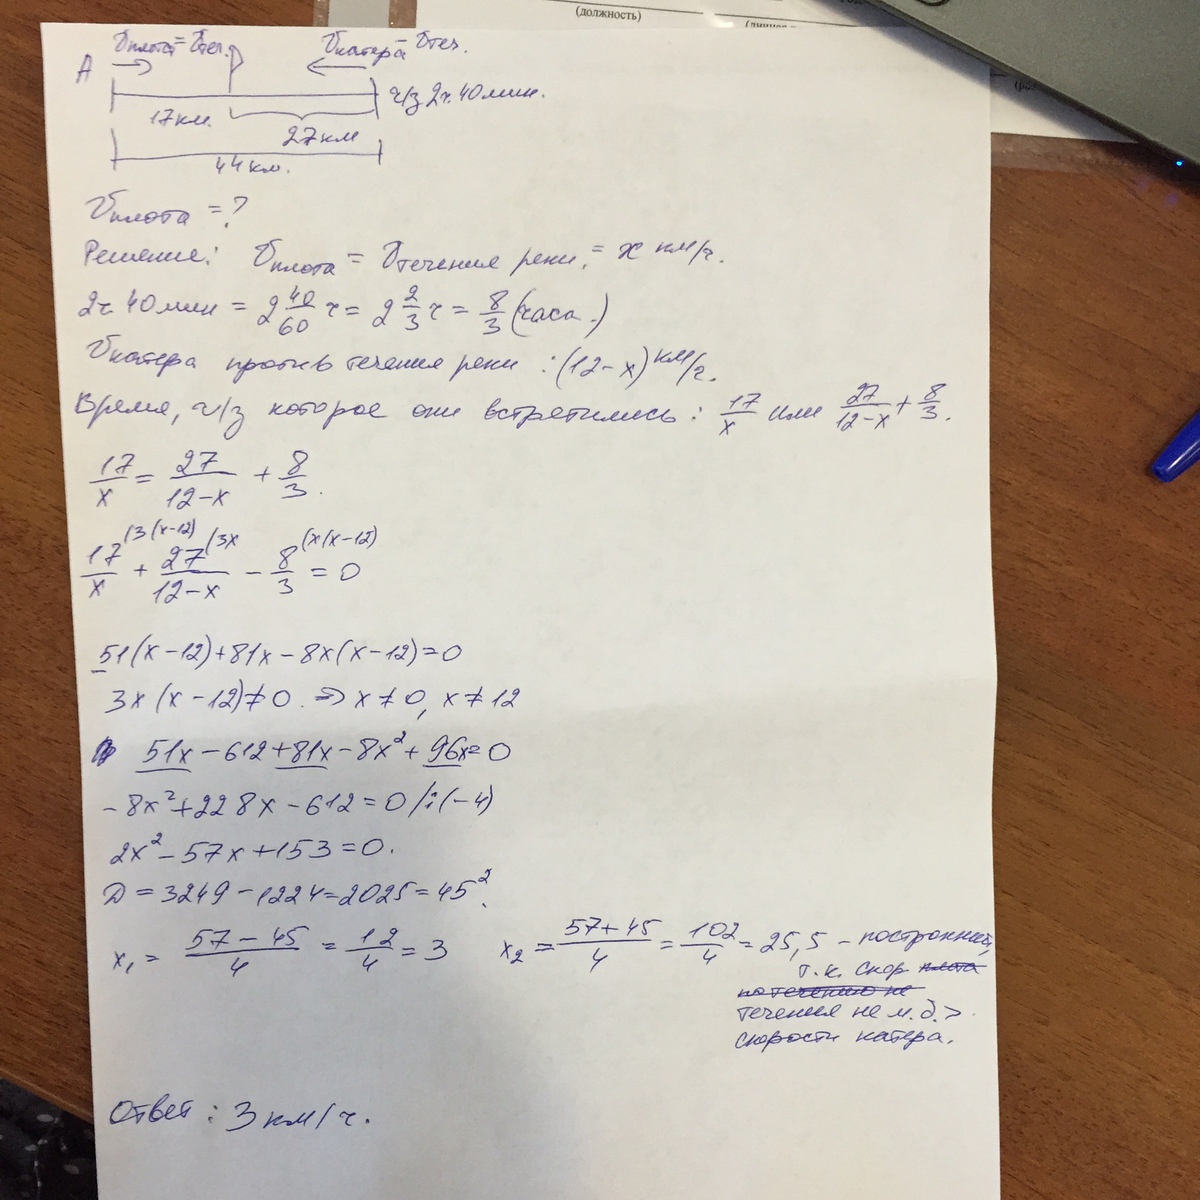 (должность)
Vплота = Vтеч.
Vкатера – Vтеч.
A
ч/з 2ч. 40 мин.
17 км.
27 км
44 км.
Vплота = ?
Решение: Vплота = Vтечения реки. = x км/ч.
2ч. 40 мин = 2 40/60 ч = 2 2/3 ч = 8/3 (часа.)
Vкатера против течения реки : (12 – x) км/ч.
Время, ч/з которое они встретились: 17/x или 27/(12–x) + 8/3.
17/x = 27/(12–x) + 8/3.
17/x (3(x–12) + 27/(12–x) (3x – 8/3 (x(x–12) = 0
51(x–12)+81x–8x(x–12)=0
3x(x–12)≠0. ⇒ x≠0, x≠12
51x – 612 + 81x – 8x² + 96x = 0
–8x²+228x–612=0 /:(–4)
2x² – 57x + 153 = 0.
D = 3249 – 1224 = 2025 = 45².
x₁ = (57 – 45)/4 = 12/4 = 3 x₂ = (57+45)/4 = 102/4 = 25,5 – построний,
т.к. скор плота
по течению не
течения не м.д. >
скорости катера.
Ответ: 3 км/ч.